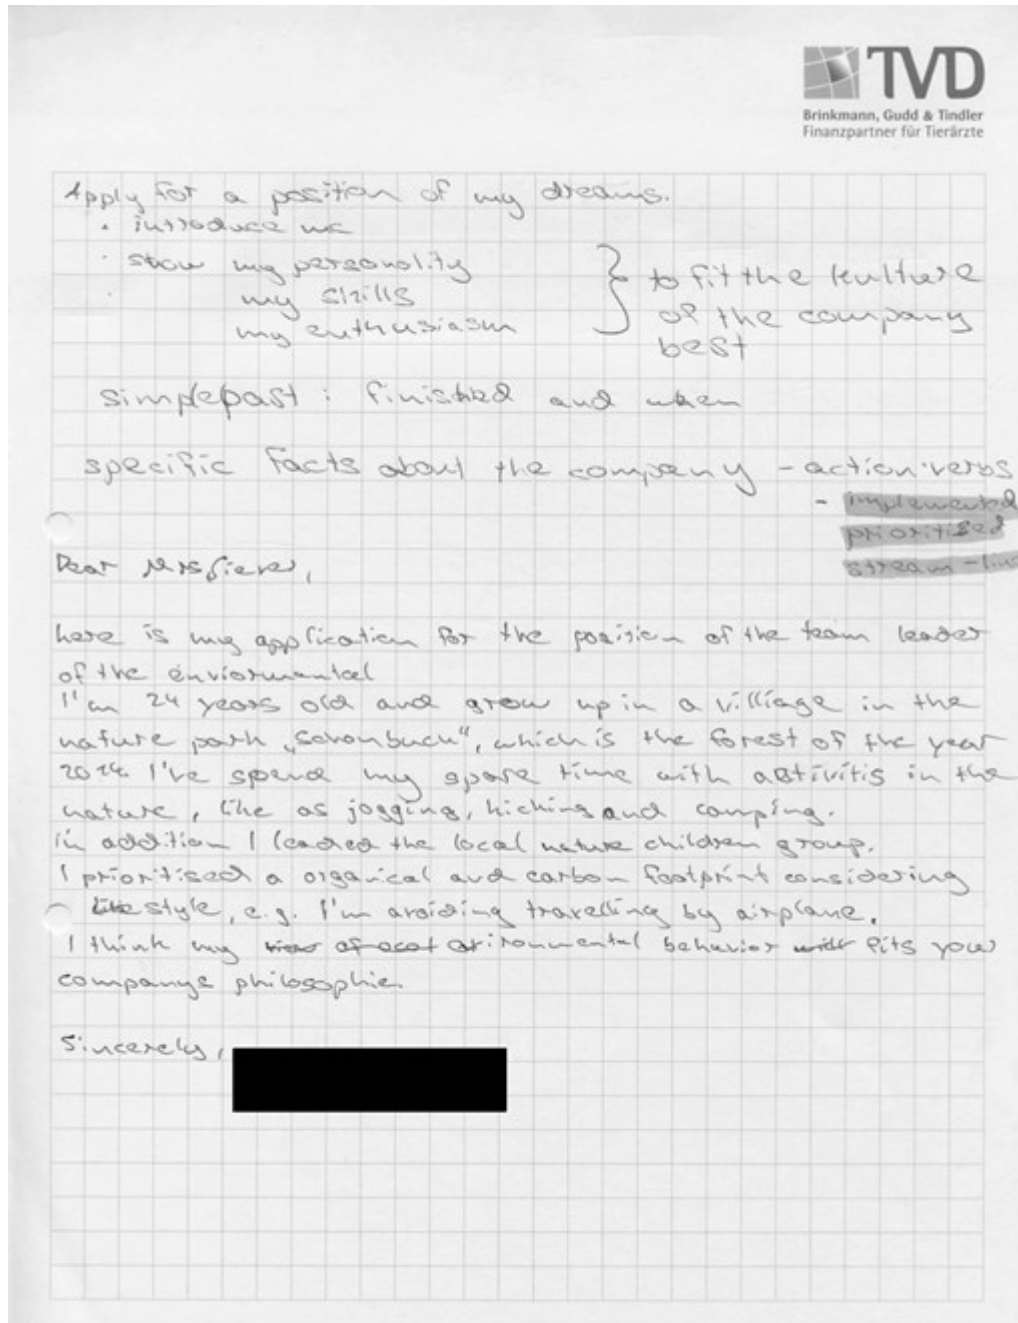 TVD
Brinkmann, Gudd & Tindler
Finanzpartner für Tierärzte
Apply for a position of my dreams.
· introduce me
· show my personality
my skills
my enthusiasm
} to fit the kulture
of the company
best
simplepast : finished and when
specific facts about the company - action verbs
- implemented
prioritised
stream-line
Dear Mrs
here is my application for the position of the team leader
of the enviormental
I'm 24 years old and grow up in a villiage in the
nature park „Schönbuch“, which is the forest of the year
I've spend my spare time with abtivitis in the
nature, like as jogging, hiching and camping.
in addition I leaded the local nature children group.
I prioritised a organical and carbon footprint considering
style, e.g. I'm avoiding travelling by airplane.
I think my behavior fits your
companys philosophie.
Sincerely,